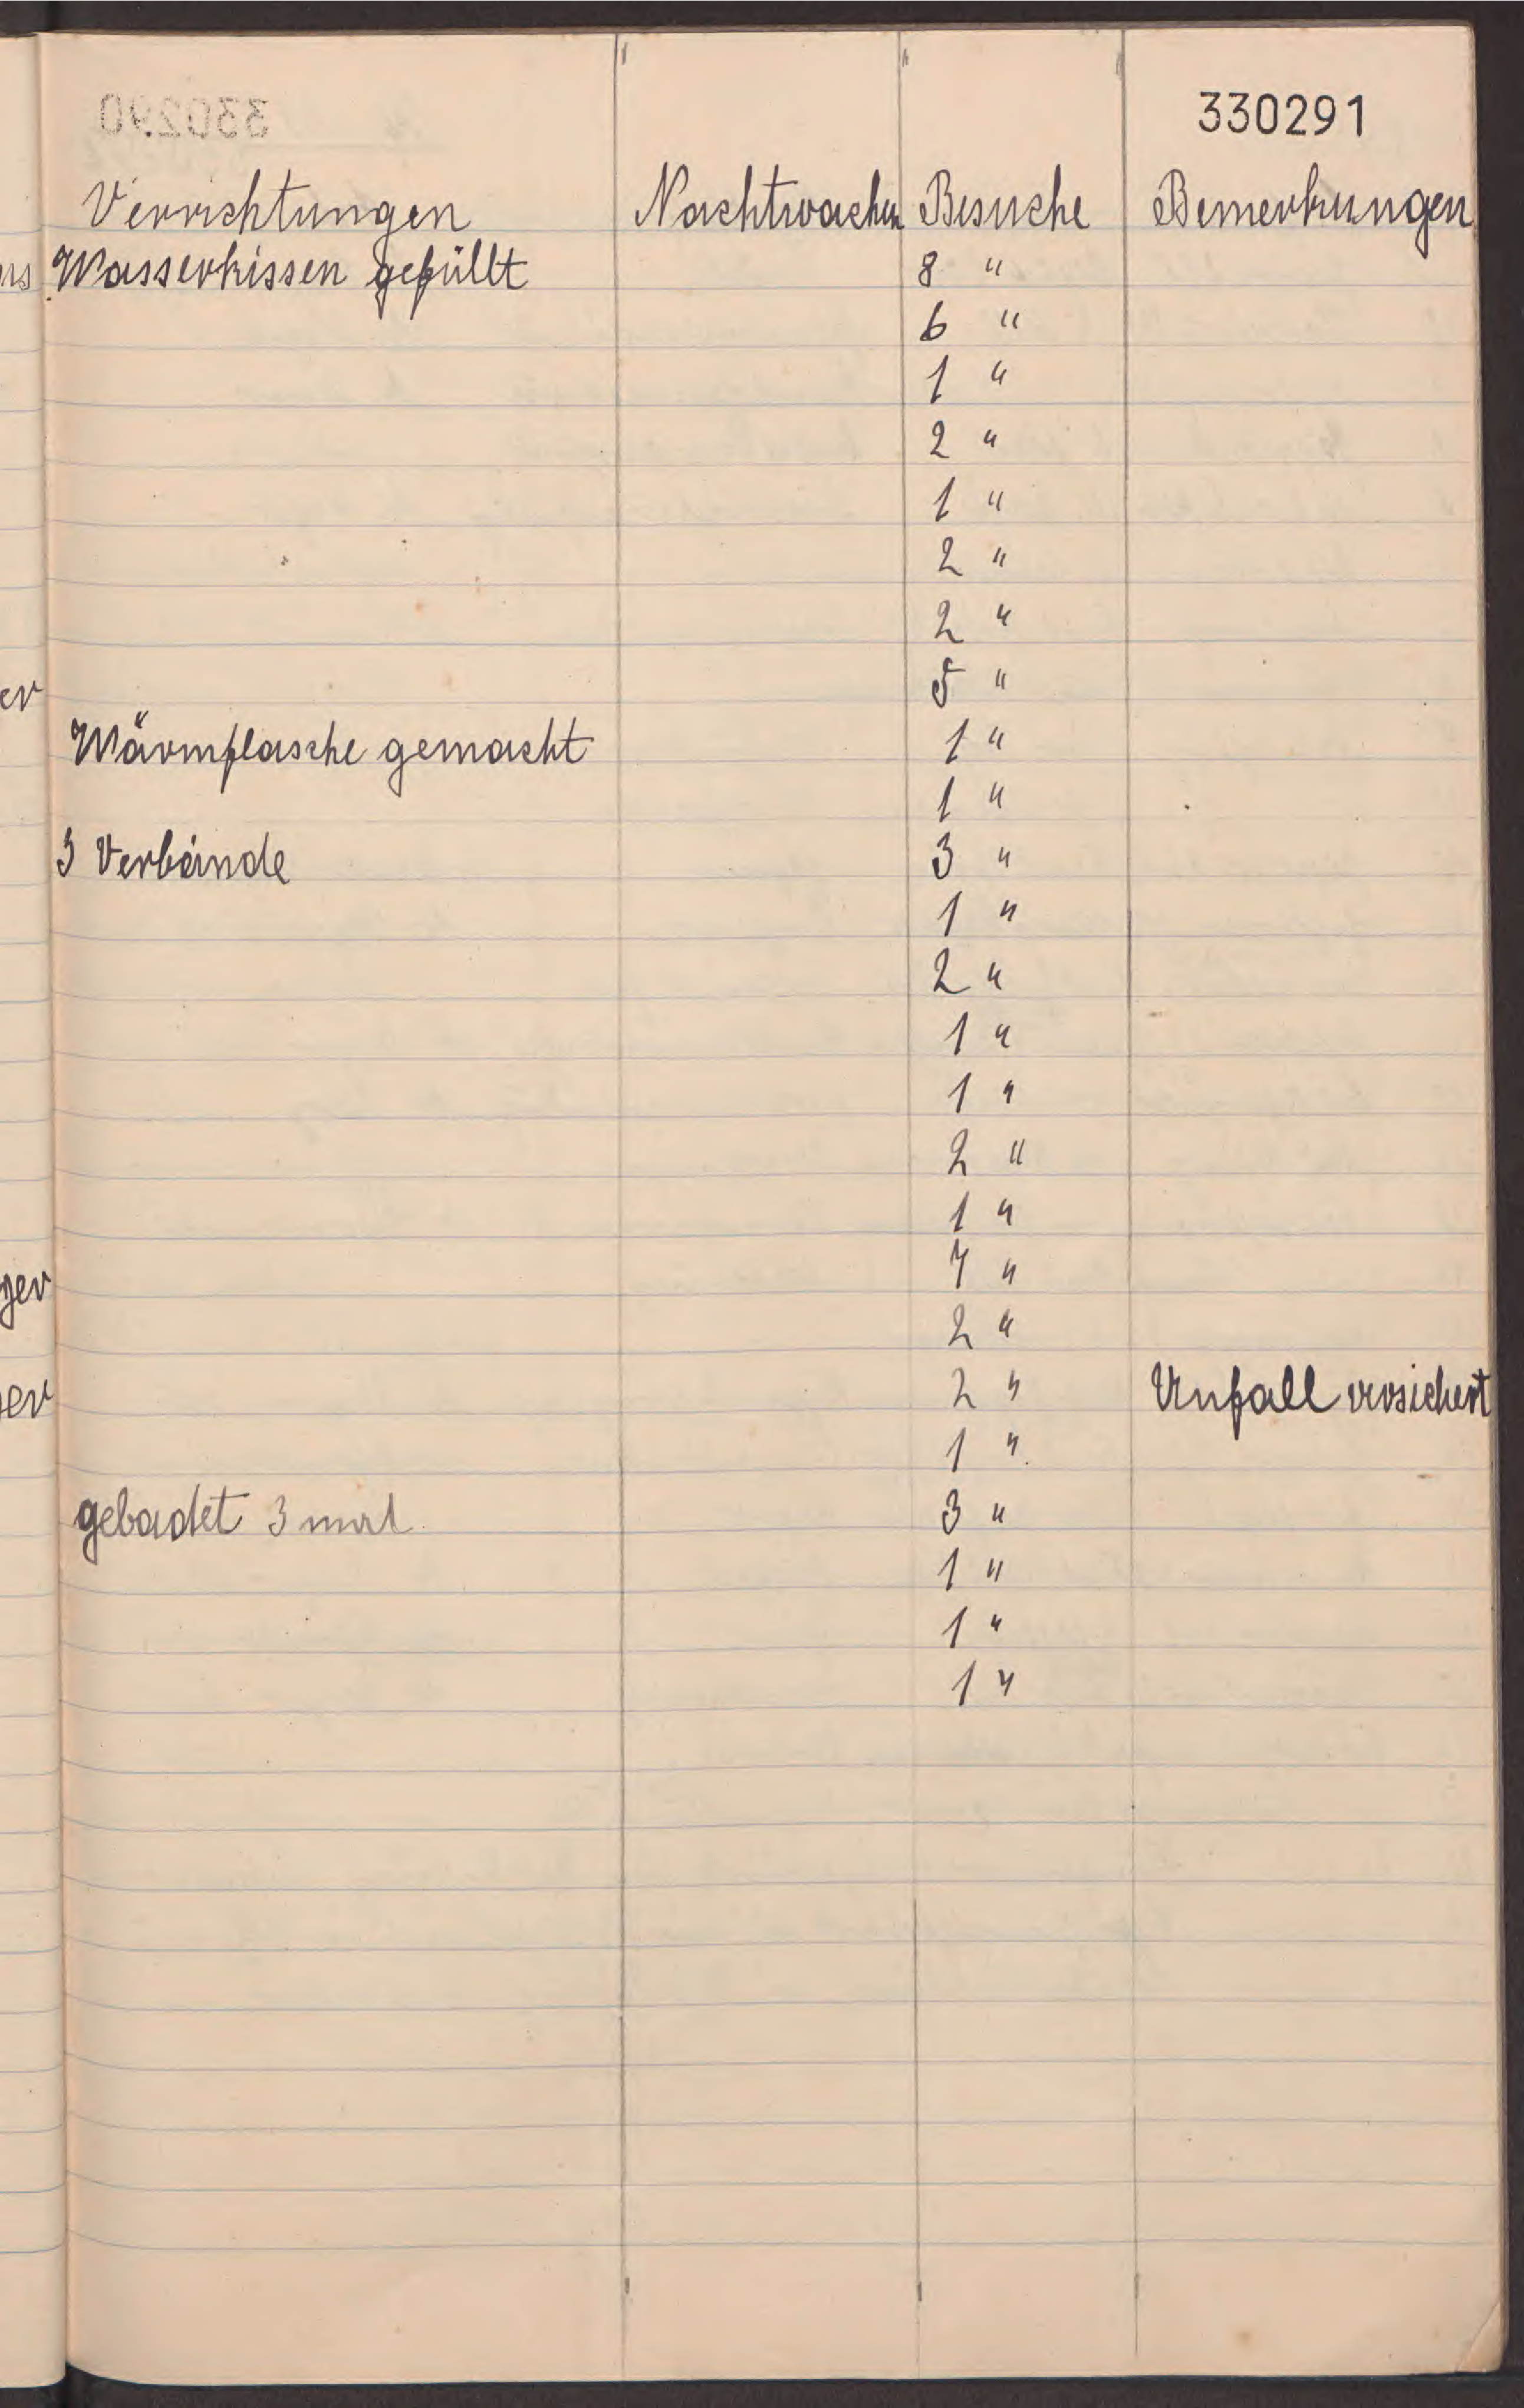 330291
Verrichtungen Nachtwachen Besuche Bemerkungen
Wasserkissen gefüllt 8 "
6 "
1 "
2 "
1 "
2 "
2 "
5 "
Wärmflasche gemacht 1 "
1 "
3 Verbände 3 "
1 "
2 "
1 "
1 "
2 "
1 "
7 "
2 "
2 " Unfall versichert
1 "
gebadet 3 mal 3 "
1 "
1 "
1 "